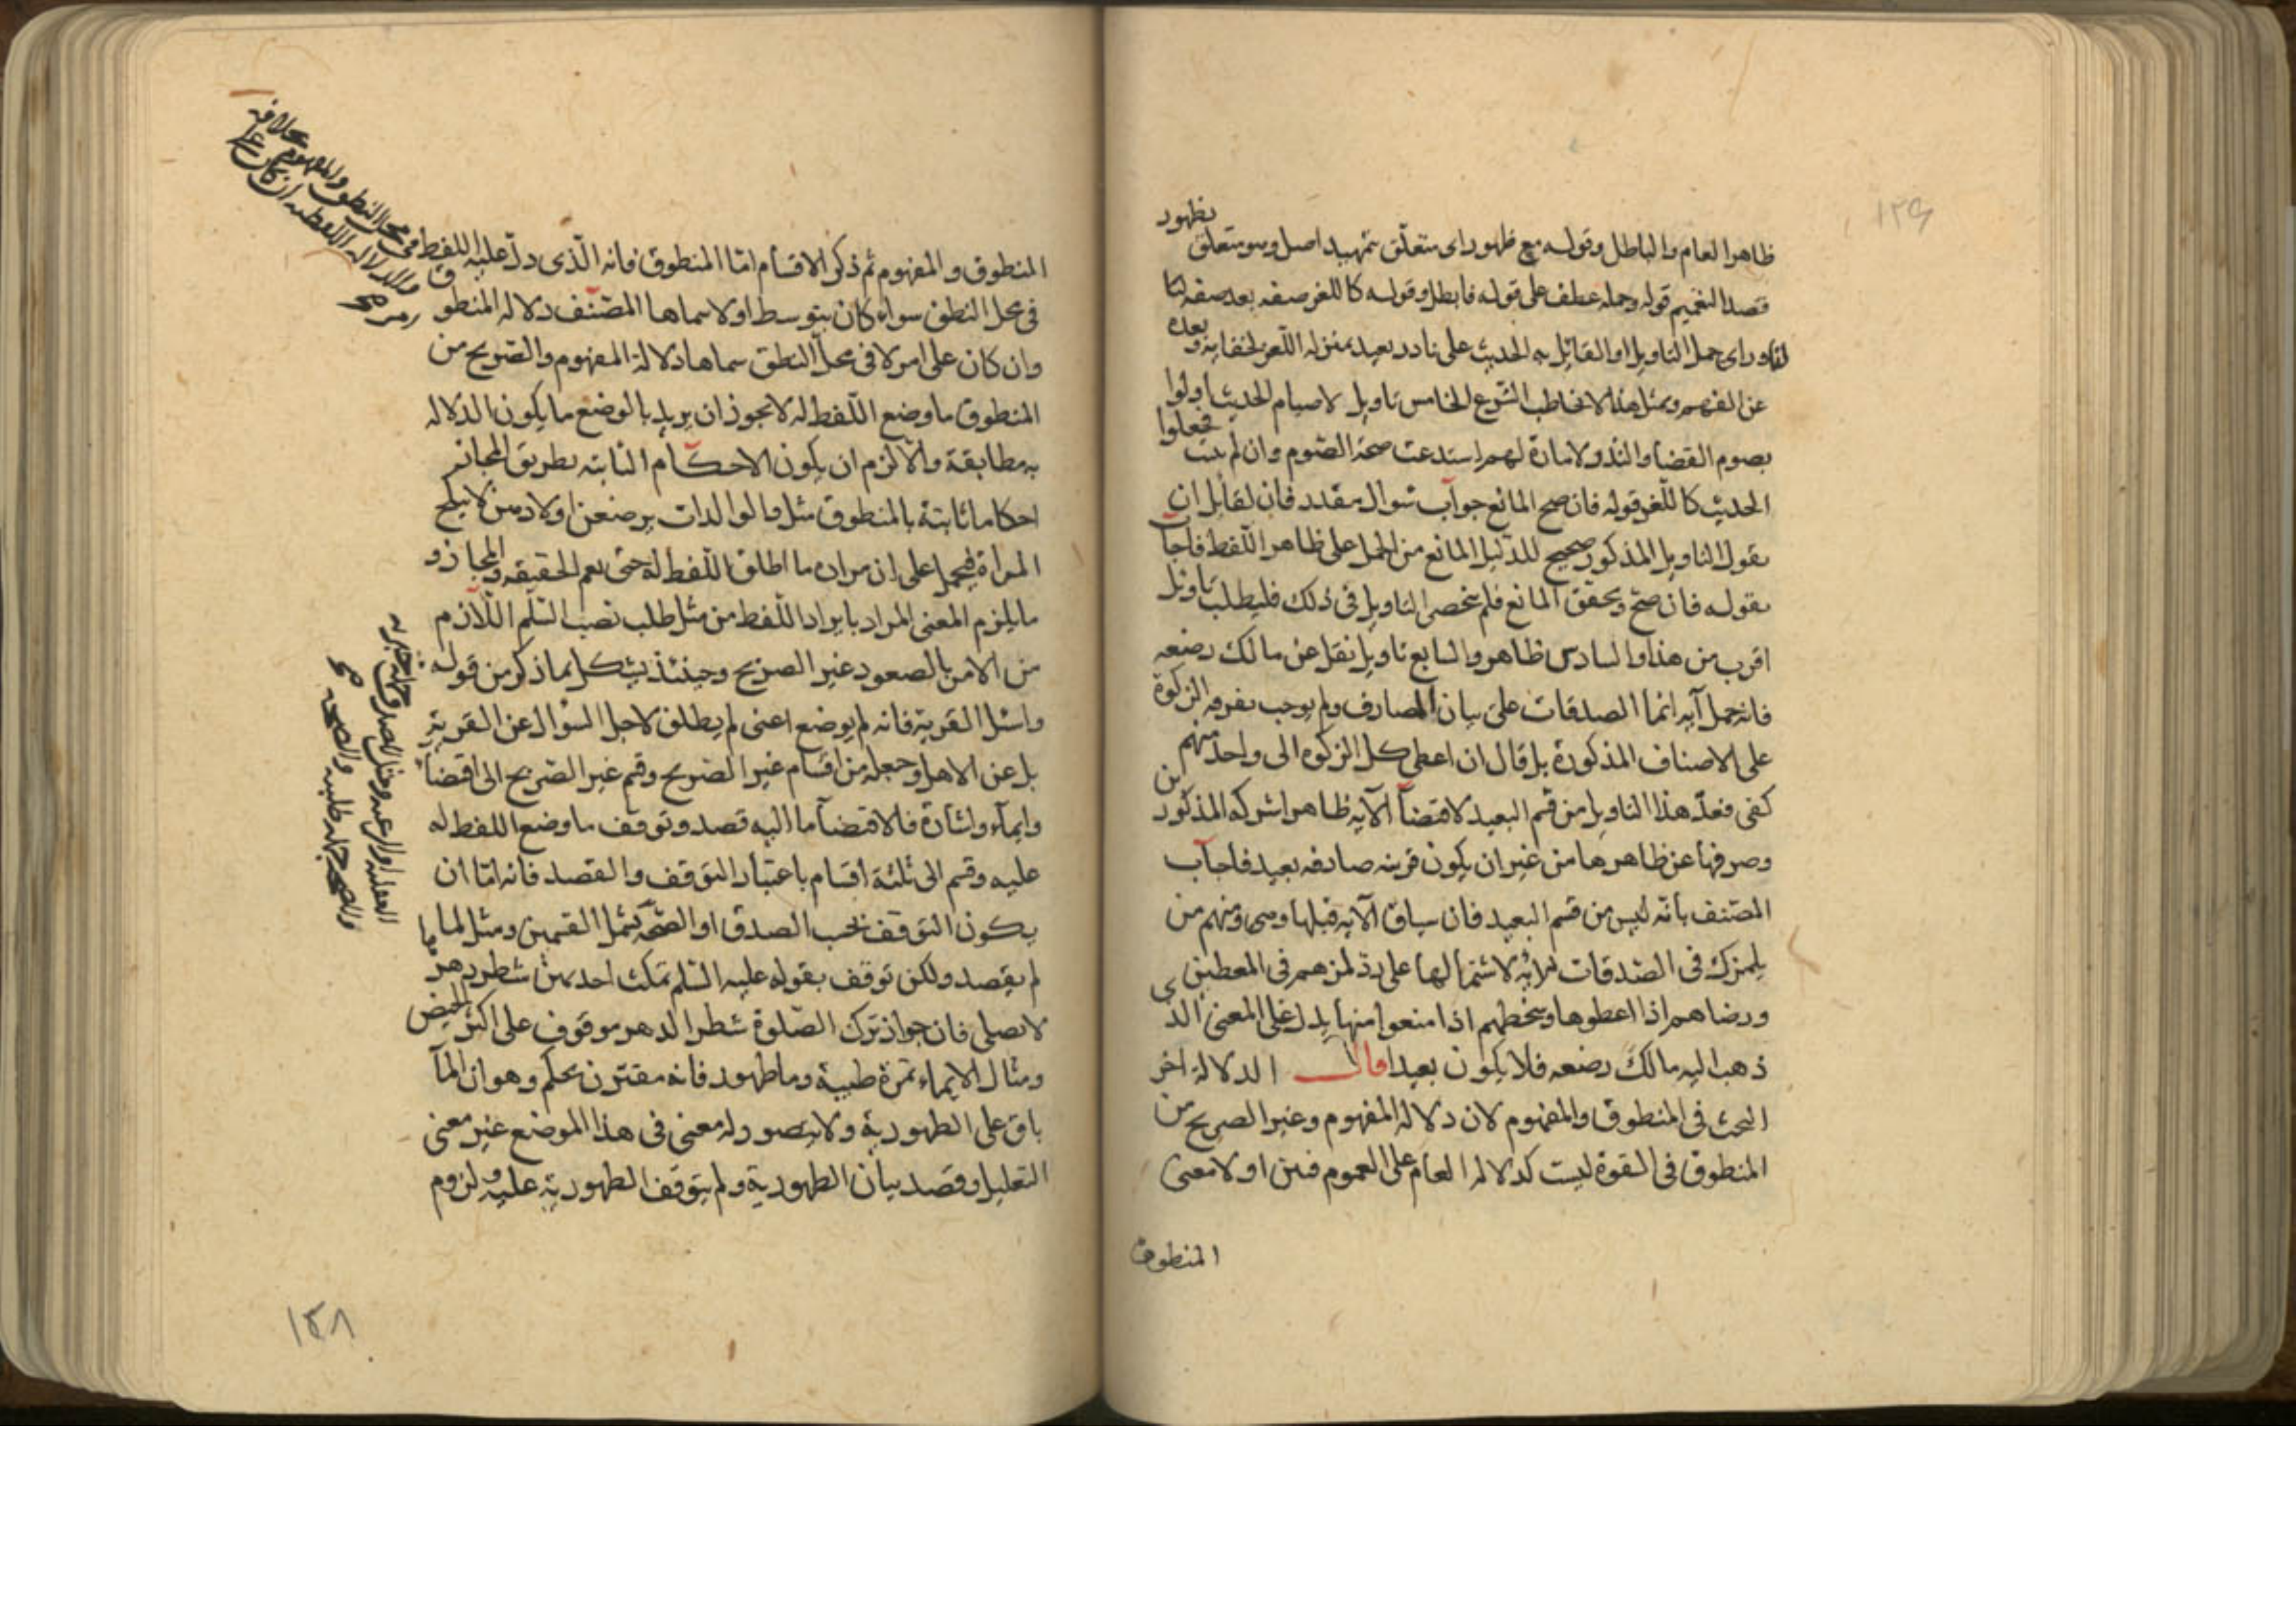 ظاهرا لعام والباطل وقوله مع ظهور اى متعلق بتمهيد اصل وهو متعلق بظهور
قصد التعميم قوله وحمله عطف على قوله فابطل وقوله كاللغز صفه بعد صفه
اى حمل التاويل او القائل به الحديث على نادر بعيد بمنزله اللغز لخفايه وبعده
عن الفهم وبمثل هذا لا يخاطب الشرع الخامس تاويل لا صيام الحديث اولوا
بصوم القضا والنذر لامارة لهم استدعت صحة الصوم وان لم يبيت فجعلوا
الحديث كاللغز قوله فان صح المانع جواب سوال مقدد فان لقائل ان
يقول التاويل المذكور صحيح للدليل المانع من الحمل على ظاهر اللفظ فاجاب
بقوله فان صح وتحقق المانع فلم ينحصر التاويل فى ذلك فليطلب تاويل
اقرب من هذا والسادس ظاهر والسابع تاويل نقل عن مالك رضعه
فانه حمل آية انما الصدقات على بيان المصارف ولم يوجب تفرقه الزكوة
على الاصناف المذكورة بل قال ان اعطى كل الزكوة الى واحد منهم
كفى فعدّ هذا التاويل من قسم البعيد لاقتضآ الآيه ظاهرا شركه المذكورين
وصرفها عن ظاهرها من غير ان يكون قرينه صادفه بعيد فاجاب
المصنف بانه ليس من قسم البعيد فان سياق الآيه قبلها وهى ومنهم من
يلمزك فى الصدقات لاشتمالها على رد لمزهم فى المعطين
ورضاهم اذا اعطوها وسخطهم اذا منعوا منها يدل على المعنى الذى
ذهب اليه مالك رضعه فلا يكون بعيدا قال الدلالة اخر
البحث فى المنطوق والمفهوم لان دلالة المفهوم وغير الصريح من
المنطوق فى القوة ليست كدلاله العام على العموم فبين اولا معنى
المنطوق
١٢٩
المنطوق والمفهوم ثم ذكر الاقسام امّا المنطوق فانه الّذى دلّ عليه اللفظ فى
محل النطق والمفهوم بخلافه
والدلاله اللفظيه ان كان على
فى محل النطق سواء كان بتوسط اولا سماها المصنف دلاله المنطوق
وان كان على امر لا فى محل النطق سماها دلالة المفهوم والصريح من
المنطوق ما وضع اللفظ له لا يجوز ان يريد بالوضع ما يكون الدلاله
به مطابقة والا لزم ان يكون الاحكام الثابته بطريق المجاز
احكاما ثابتة بالمنطوق مثل والوالدات يرضعن اولادهن لا ينكح
المراة فيحمل على ان مراده ما اطلق اللفظ له حتى يعم الحقيقه والمجاز و
ما يلزم المعنى المراد بايراد اللفظ من مثل طلب نصب السلّم اللازم
من الامر بالصعود غير الصريح وحينئذ يشكل بما ذكر من قوله
واسئل القرية فانه لم يوضع اعنى لم يطلق لاجل السؤال عن القرية
بل عن الاهل وجعله من اقسام غير الصريح وقسم غير الصريح الى اقتضآ
وايمآء واشارة فالاقتضآ ما اليه قصد وتوقف ما وضع اللفظ له
عليه وقسم الى ثلثة اقسام باعتبار التوقف والقصد فانه امّا ان
يكون التوقف بحسب الصدق او الصحه يشمل القسمين ومثل لما
لم يقصد ولكن توقف بقوله عليه السّلم تمكث احديهن شطر دهرها
لا تصلى فان جواز ترك الصّلوة شطر الدهر موقوف على اكثر الحيض
ومثال الايماء تمرة طيبة وماطهود فانه مقترن بحكم وهو ان المآ
باق على الطهورية ولا يتصور له معنى فى هذا الموضع غير معنى
التعليل وقصد بيان الطهورية ولم يتوقف الطهورية عليه ولزوم
١٢٨